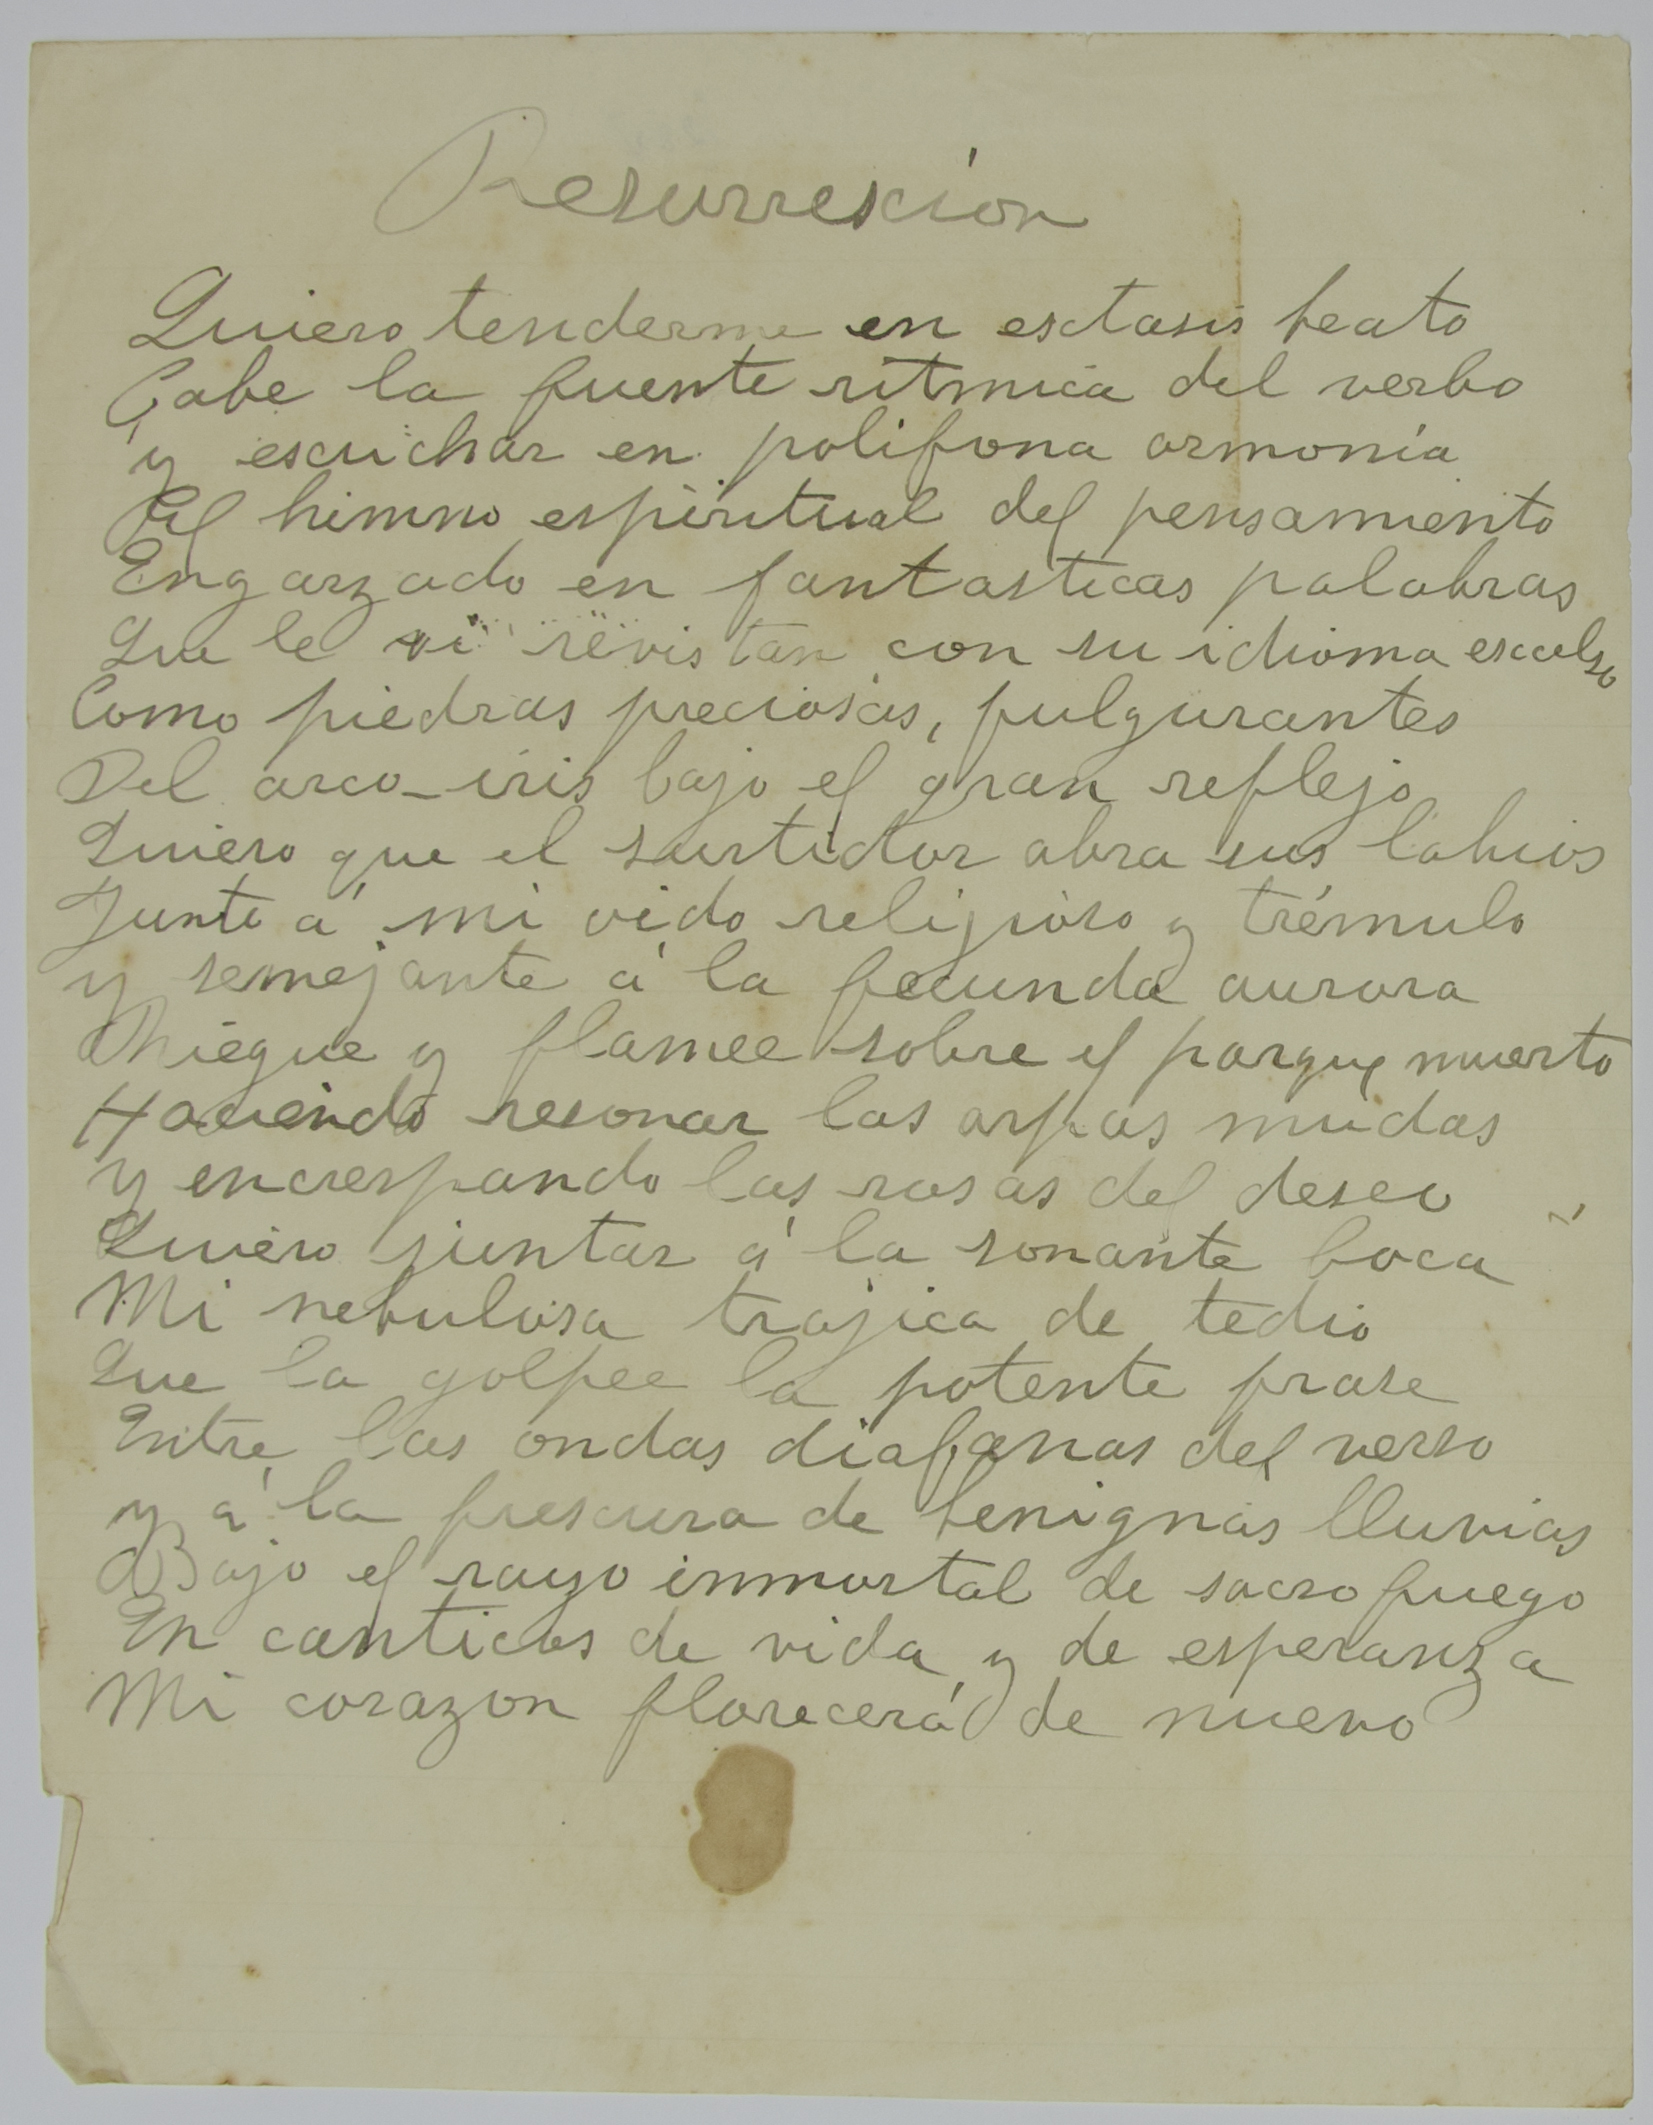 Resurrexión
Quiero tenderme en extasis beato
Cabe la fuente ritmica del verbo
y escuchar en polifona armonía
El himno espiritual del pensamiento
Engarzado en fantasticas palabras
Que le revistan con su idioma excelso
Como piedras preciosas, fulgurantes
Del arco-iris bajo el gran reflejo
Quiero que el surtidor abra sus labios
Junto á mi oido religioso y trémulo
y semejante á la fecunda aurora
Riegue y flamee sobre el parque muerto
Haciendo resonar las arpas mudas
y encrespando las rosas del deseo
Quiero juntar á la sonante boca
Mi nebulosa trajica de tedio
Que la golpee la potente frase
Entre las ondas diafanas del verso
y á la frescura de benignas lluvias
Bajo el rayo inmortal de sacro fuego
En canticos de vida y de esperanza
Mi corazon florecerá de nuevo